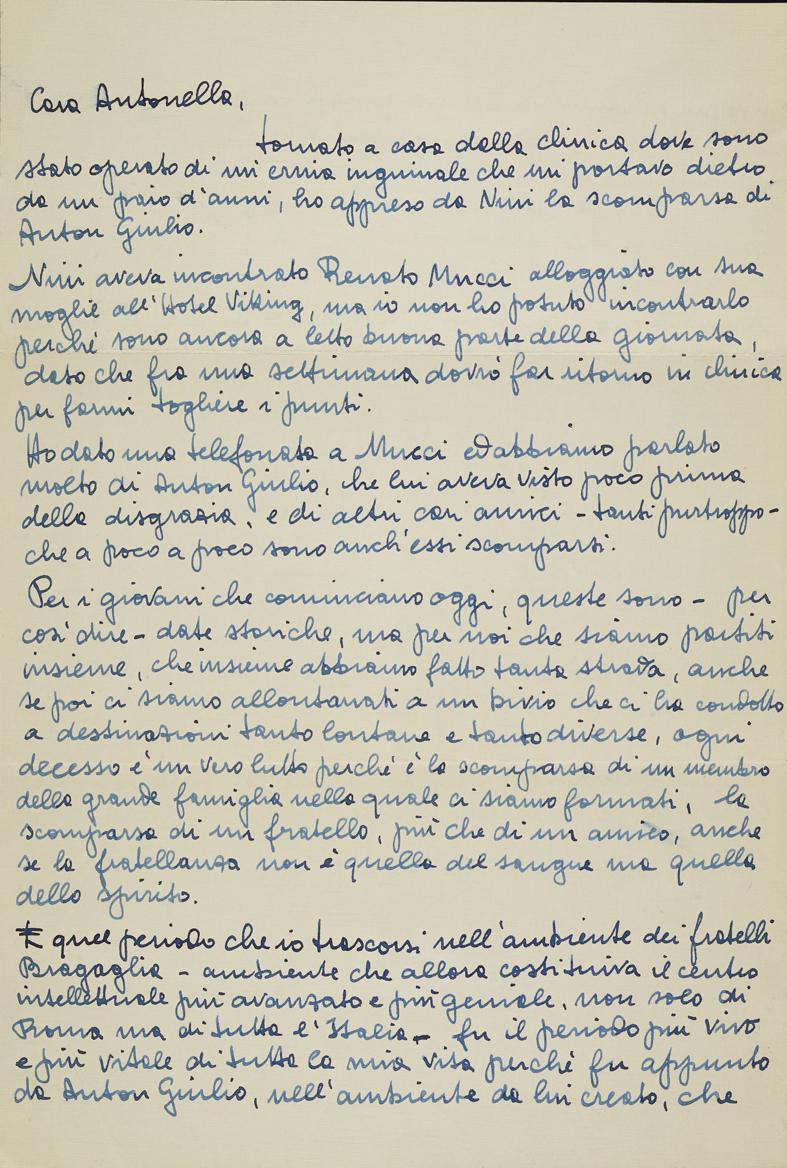 Cara Antonella,
tornato a casa dalla clinica dove sono
stato operato di un'ernia inguinale che mi portavo dietro
da un paio d'anni, ho appreso da Nini la scomparsa di
Anton Giulio.
Nini aveva incontrato Renato Mucci alloggiato con sua
moglie all'Hotel Viking, ma io non ho potuto incontrarlo
perché sono ancora a letto buona parte della giornata,
dato che fra una settimana dovrò far ritorno in clinica
per farmi togliere i punti.
Ho dato una telefonata a Mucci ed abbiamo parlato
molto di Anton Giulio, che lui aveva visto poco prima
della disgrazia, e di altri cari amici - tanti purtroppo -
che a poco a poco sono anch'essi scomparsi.
Per i giovani che cominciano oggi, queste sono - per
così dire - date storiche, ma per noi che siamo partiti
insieme, che insieme abbiamo fatto tanta strada, anche
se poi ci siamo allontanati a un bivio che ci ha condotto
a destinazioni tanto lontane e tanto diverse, ogni
decesso è un vero lutto perché è la scomparsa di un membro
della grande famiglia nella quale ci siamo formati, la
scomparsa di un fratello, più che di un amico, anche
se la fratellanza non è quella del sangue ma quella
dello spirito.
E quel periodo che io trascorsi nell'ambiente dei fratelli
Bragaglia - ambiente che allora costituiva il centro
intellettuale più avanzato e più geniale, non solo di
Roma ma di tutta l'Italia - fu il periodo più vivo
e più vitale di tutta la mia vita perché fu appunto
da Anton Giulio, nell'ambiente da lui creato, che